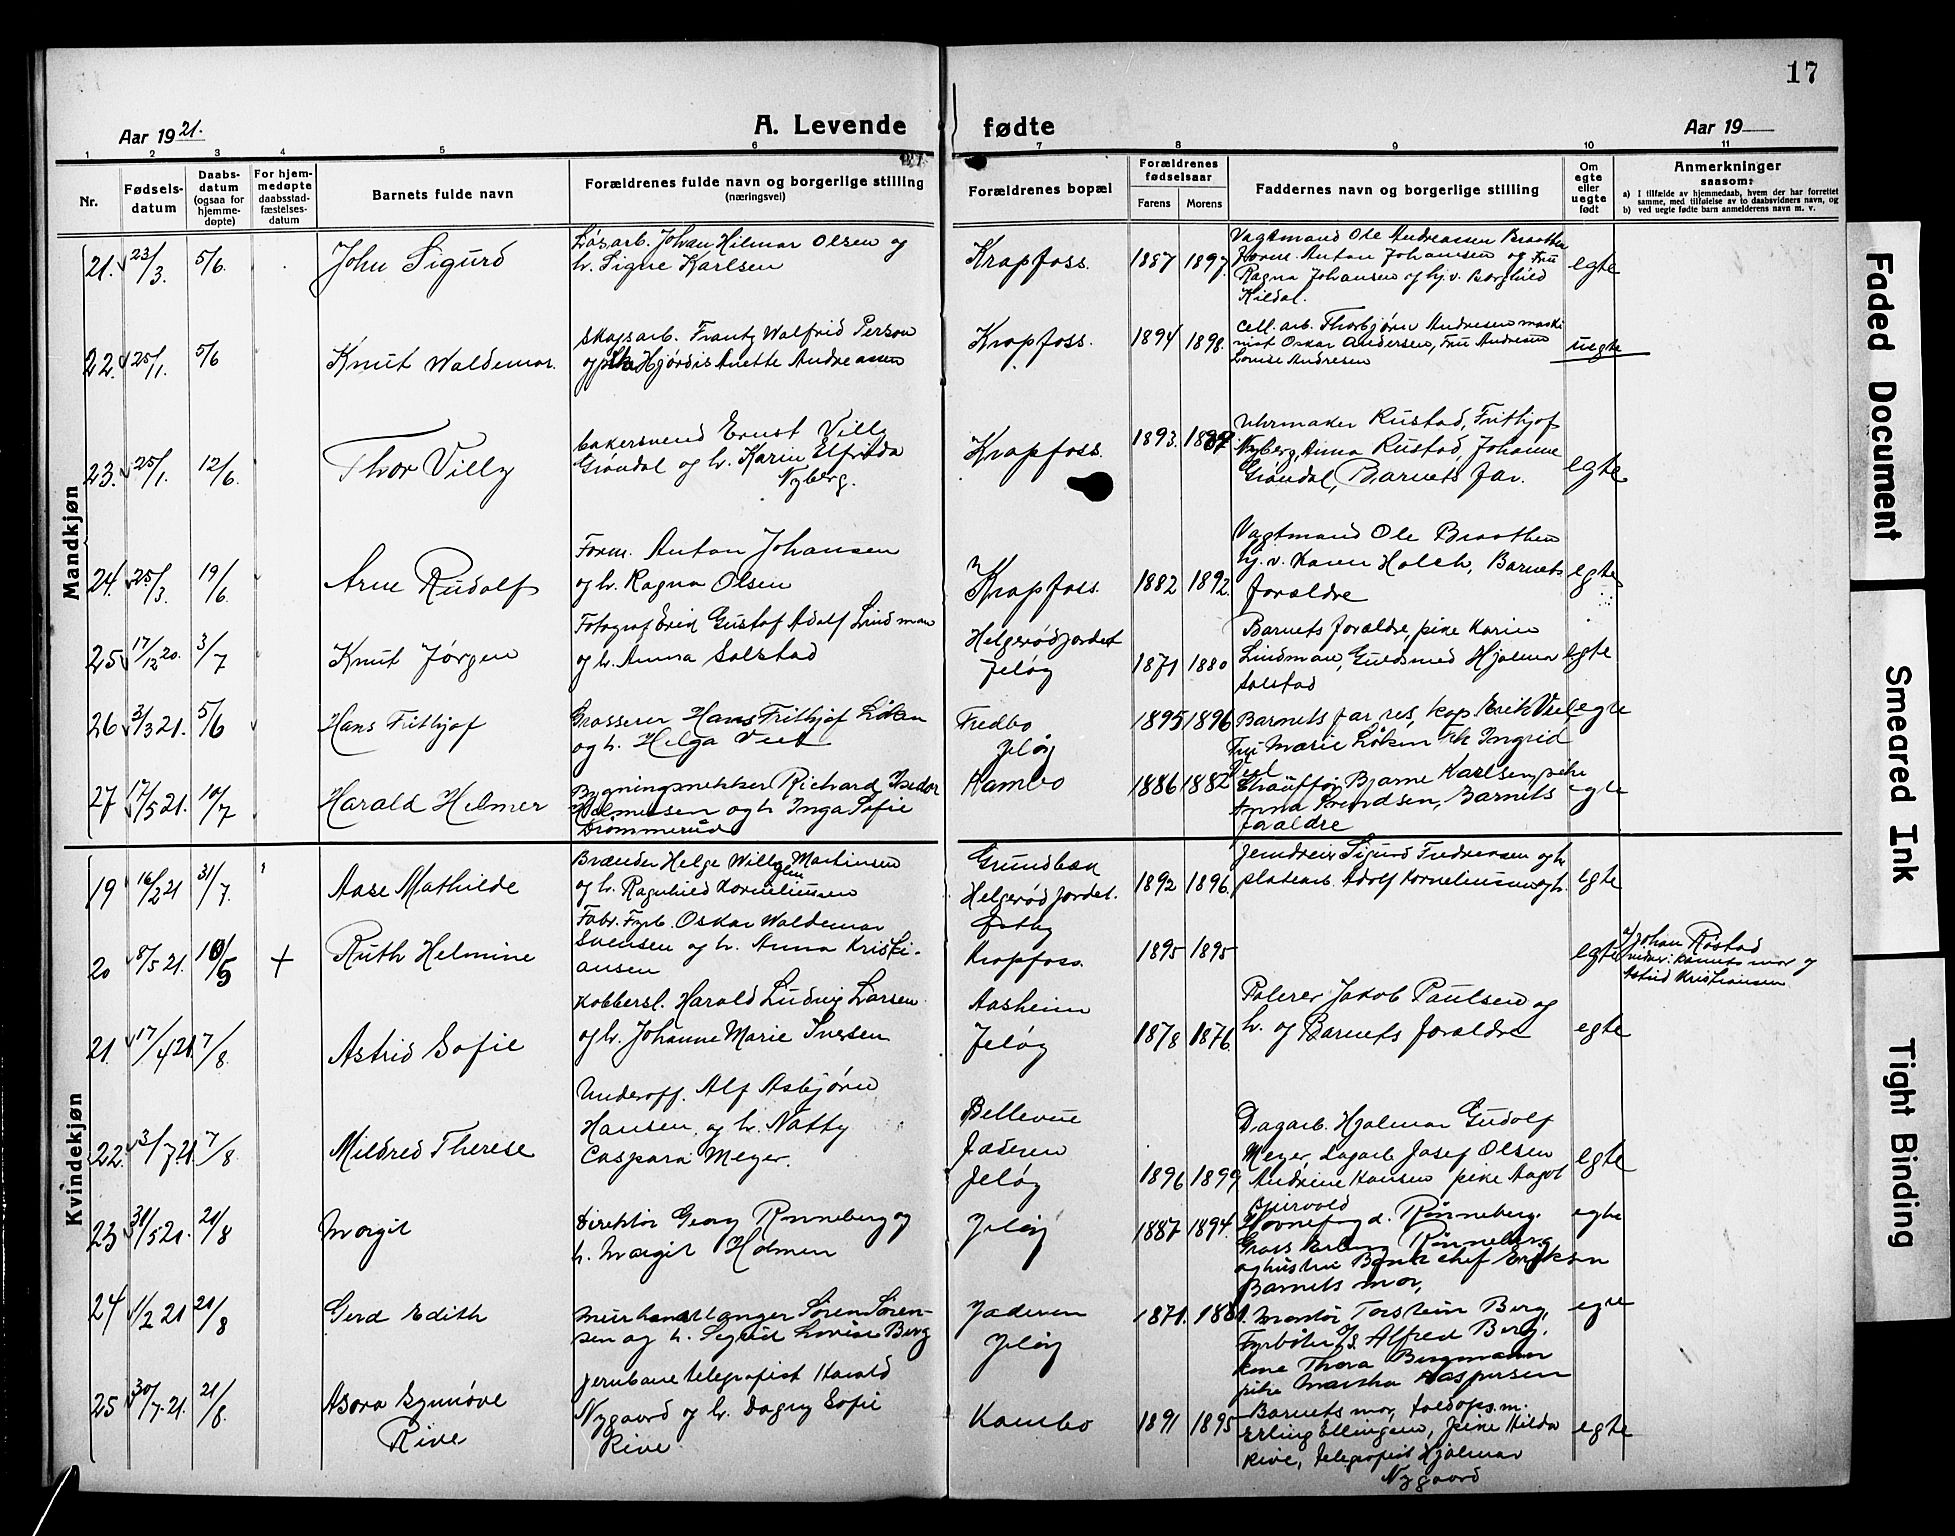 17
Aar 1921.
A. Levende fødte
Aar 19
1 2 3 4 5 6 7 8 9 10 11
Nr.
Fødsels-
datum
Daabs-
datum
(ogsaa for
hjemme-
døpte)
For hjem-
medøpte
daabsstad-
fæstelses-
datum
Barnets fulde navn
Forældrenes fulde navn og borgerlige stilling
(næringsvei)
Forældrenes bopæl
Forældrenes
fødselsaar
Farens
Morens
Faddernes navn og borgerlige stilling
Om
egte
eller
uegte
født
Anmerkninger
saasom:
a) I tilfælde av hjemmedaab, hvem der har forrettet
samme, med tilføielse av to daabsvidners navn, og
b) ved uegte fødte barn anmelderens navn m. v.
Mandkjøn
21. 23/3. 5/6.
John Sigurd
Løsarb. Johan Hilmar Olsen og
h. Signe Karlsen
Krapfoss.
1887 1897.
Vagtmand Ole Andreassen Braathen
Form. Anton Johansen og Fru
Ragna Johansen og hj. v. Borghild
Kildal.
egte
22. 25/1. 5/6
Knut Waldemar.
Skogsarb. Frantz Walfrid Person
og Hjørdis Anette Andreassen
Krapfoss.
1894 1898.
Cell. arb. Thorbjørn Andresen maski
nist Oskar Andersen, Fru Andresen
Louise Andresen
uegte
23. 25/1. 12/6.
Thor Villy
bakersvend Ernst Villy
Grøndal og h. Karin Elfrida
Nyberg.
Krapfoss.
1893.
Uhrmaker Rustad, Frithjof
Nyberg, Anna Rustad, Johanne
Grøndal, Barnets far.
egte
24. 25/3. 19/6.
Arne Rudolf
Form. Anton Johansen
og h. Ragna Olsen
Krapfoss.
1882 1892.
Vagtmand Ole Braathen
hj. v. Karen Holch, Barnets
forældre
egte
25 17/12 20. 3/7
Knut Jørgen
Fotograf Erik Gustaf Adolf Lindman
og h. Anna Solstad
Helgerødjordet
Jeløy
1871 1880
Barnets forældre, pike Karin
Lindman, Guldsmed Hjalmar
Solstad
egte
26 3/3 21. 5/6
Hans Frithjof
Grosserer Hans Frithjof Løken
og h. Helga Vest
Fredbo
Jeløy
1895 1896
Barnets far, res. kap. Erik Vest
Fru Marie Løken Frk Ingrid
Vest
egte
27 17/5 21. 10/7
Harald Helmer
Bygningssnekker Richard Isedor
Helmersen og h Inga Sofie
Drømmerud
Kambo
1886 1882
Chauffør Bjarne Karlsen, pike
Anna Svendsen, Barnets
forældre
egte
Kvindekjøn
19 16/2 21 31/7.
Aase Mathilde
Brænder Helge Willy Martinsen
og h. Ragnhild Korneliussen
Grundbæk
Helgerød Jordet.
1892 1896.
Jerndreier Sigurd Fredriksen og h.
platearb. Adolf Korneliussen og h.
egte
20 8/5 21. 10/5 +
Ruth Helmine
Fabr. Fyrb. Oskar Waldemar
Svensen og h. Anna Kristi-
ansen
Krapfoss.
1895 1895
egte
a/ Johan Røstad
vidner: barnets mor og
Astrid Kristiansen
21. 17/4 21. 7/8.
Astrid Sofie
Kobbersl. Harald Ludvig Larsen.
og h. Johanne Marie Iversen
Aasheim
Jeløy
1878 1876.
Polerer Jakob Paulsen og
h. og Barnets forældre
egte
22. 3/7 21. 7/8.
Mildred Therese
Underoff. Alf Asbjørn
Hansen, og h. Natty
Caspara Meyer.
Bellevue
Jaderen
Jeløy
1896 1899
Dagarb. Hjalmar Gudolf
Meyer, dagarb. Josef Olsen
Andrine Hansen pike Aagot
Bjervold
egte
23 31/5 21. 21/8
Margit
Direktør Georg Rønneberg og
h. Margit Holmen
Jeløy
1887 1894.
Hovnefogd. Rønneberg.
Gross Erling Rønneberg
og hustru Bankchef Eriksen
Barnets mor,
egte
24 1/2 21 21/8
Gerd Edith
Murhandtlanger Søren Søren-
sen og h. Sigrid Lovise Berg
Jaderen
Jeløy
1871. 1881.
Montør Torstein Berg,
Fyrbøter Alfred Berg.
kone Thora Bergmann
pike Martha Kaspersen
egte
25 30/7. 21. 21/8.
Asora Synnøve
Rive
Jernbanetelegrafist Harald
Nygaard og h. Dagny Sofie
Rive
Kambo
1891 1895
Barnets mor, toldops.m.
Erling Ellingsen, pike Hilda
Rive, telegrafist Hjalmar
Nygaard
egte
Faded Document
Smeared Ink
Tight Binding